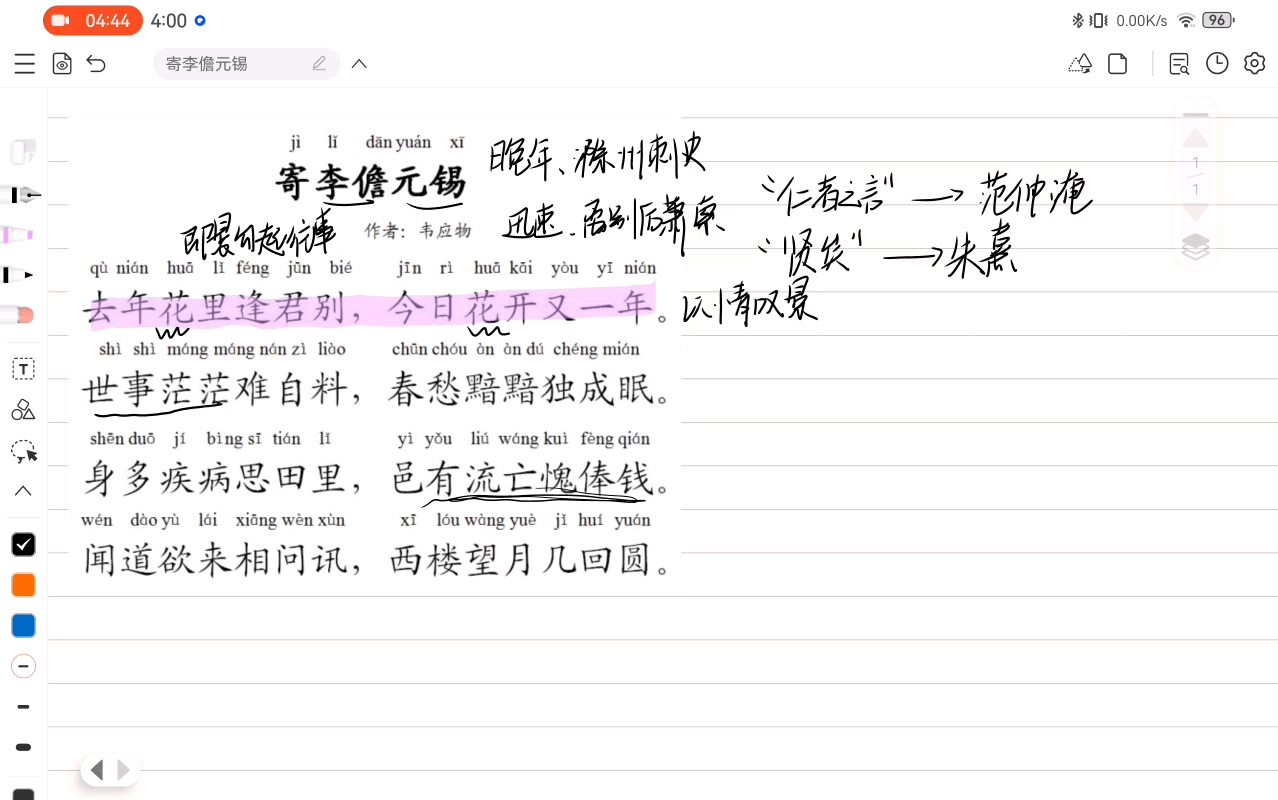 04:44 4:00 0.00K/s 96
寄李儋元锡
jì lǐ dān yuán xī
寄李儋元锡
晚年、滁州刺史
"仁者之言" → 范仲淹
即景勾起往事
作者：韦应物
迅速、离别后萧索
"贤矣" → 朱熹
qù nián huā lǐ féng jūn bié jīn rì huā kāi yòu yī nián
去年花里逢君别，今日花开又一年。
以情叹景
shì shì máng máng nán zì liào chūn chóu àn àn dú chéng mián
世事茫茫难自料，春愁黯黯独成眠。
shēn duō jí bìng sī tián lǐ yì yǒu liú wáng kuì fèng qián
身多疾病思田里，邑有流亡愧俸钱。
wén dào yù lái xiāng wèn xùn xī lóu wàng yuè jǐ huí yuán
闻道欲来相问讯，西楼望月几回圆。
1
1
T